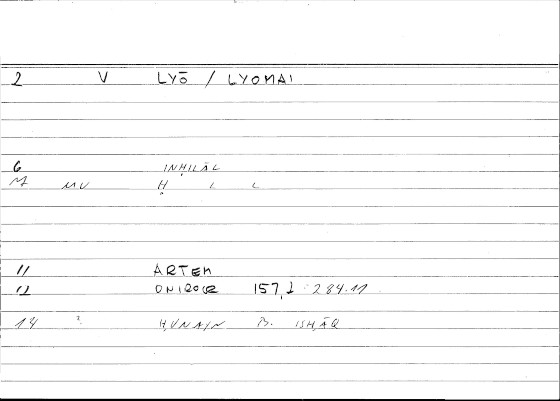 2 V LYŌ / LYOMAI
6 INḤILĀL
M MV Ḥ L L
11 ARTEM
12 ONIROCR 157,2 284.11
14 ḤUNAYN B. ISḤĀQ